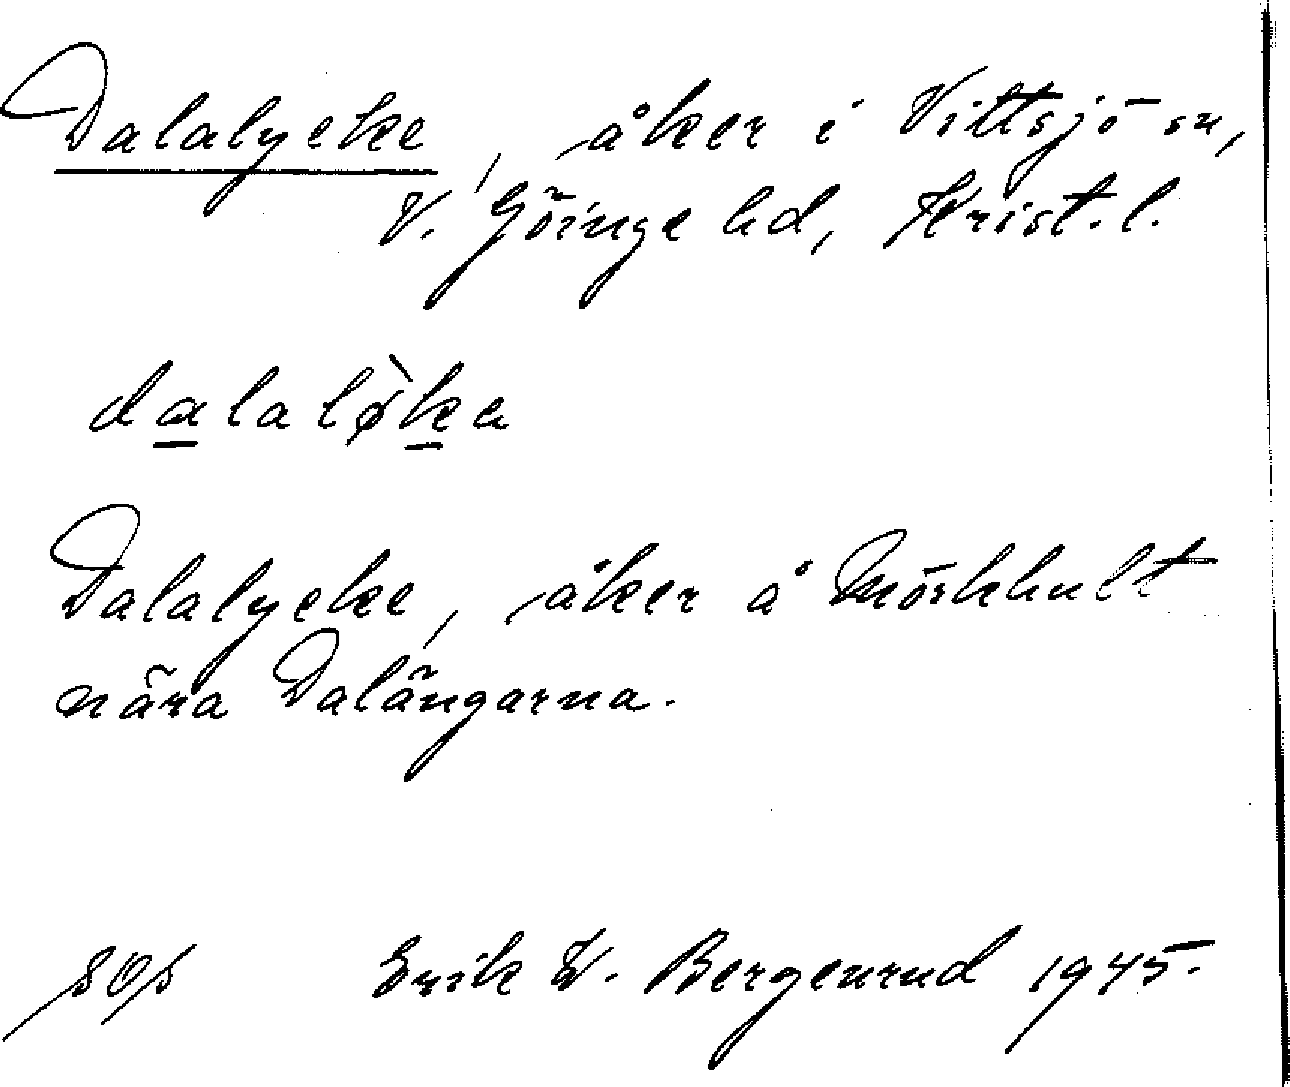 Dalalycke, åker i Vittsjö sn,
V. Göinge hd, Krist. l.
dalalø̀ka
Dalalycke, åker å Mörkhult
nära Dalängarna.
Erik W. Bergenrud 1945.